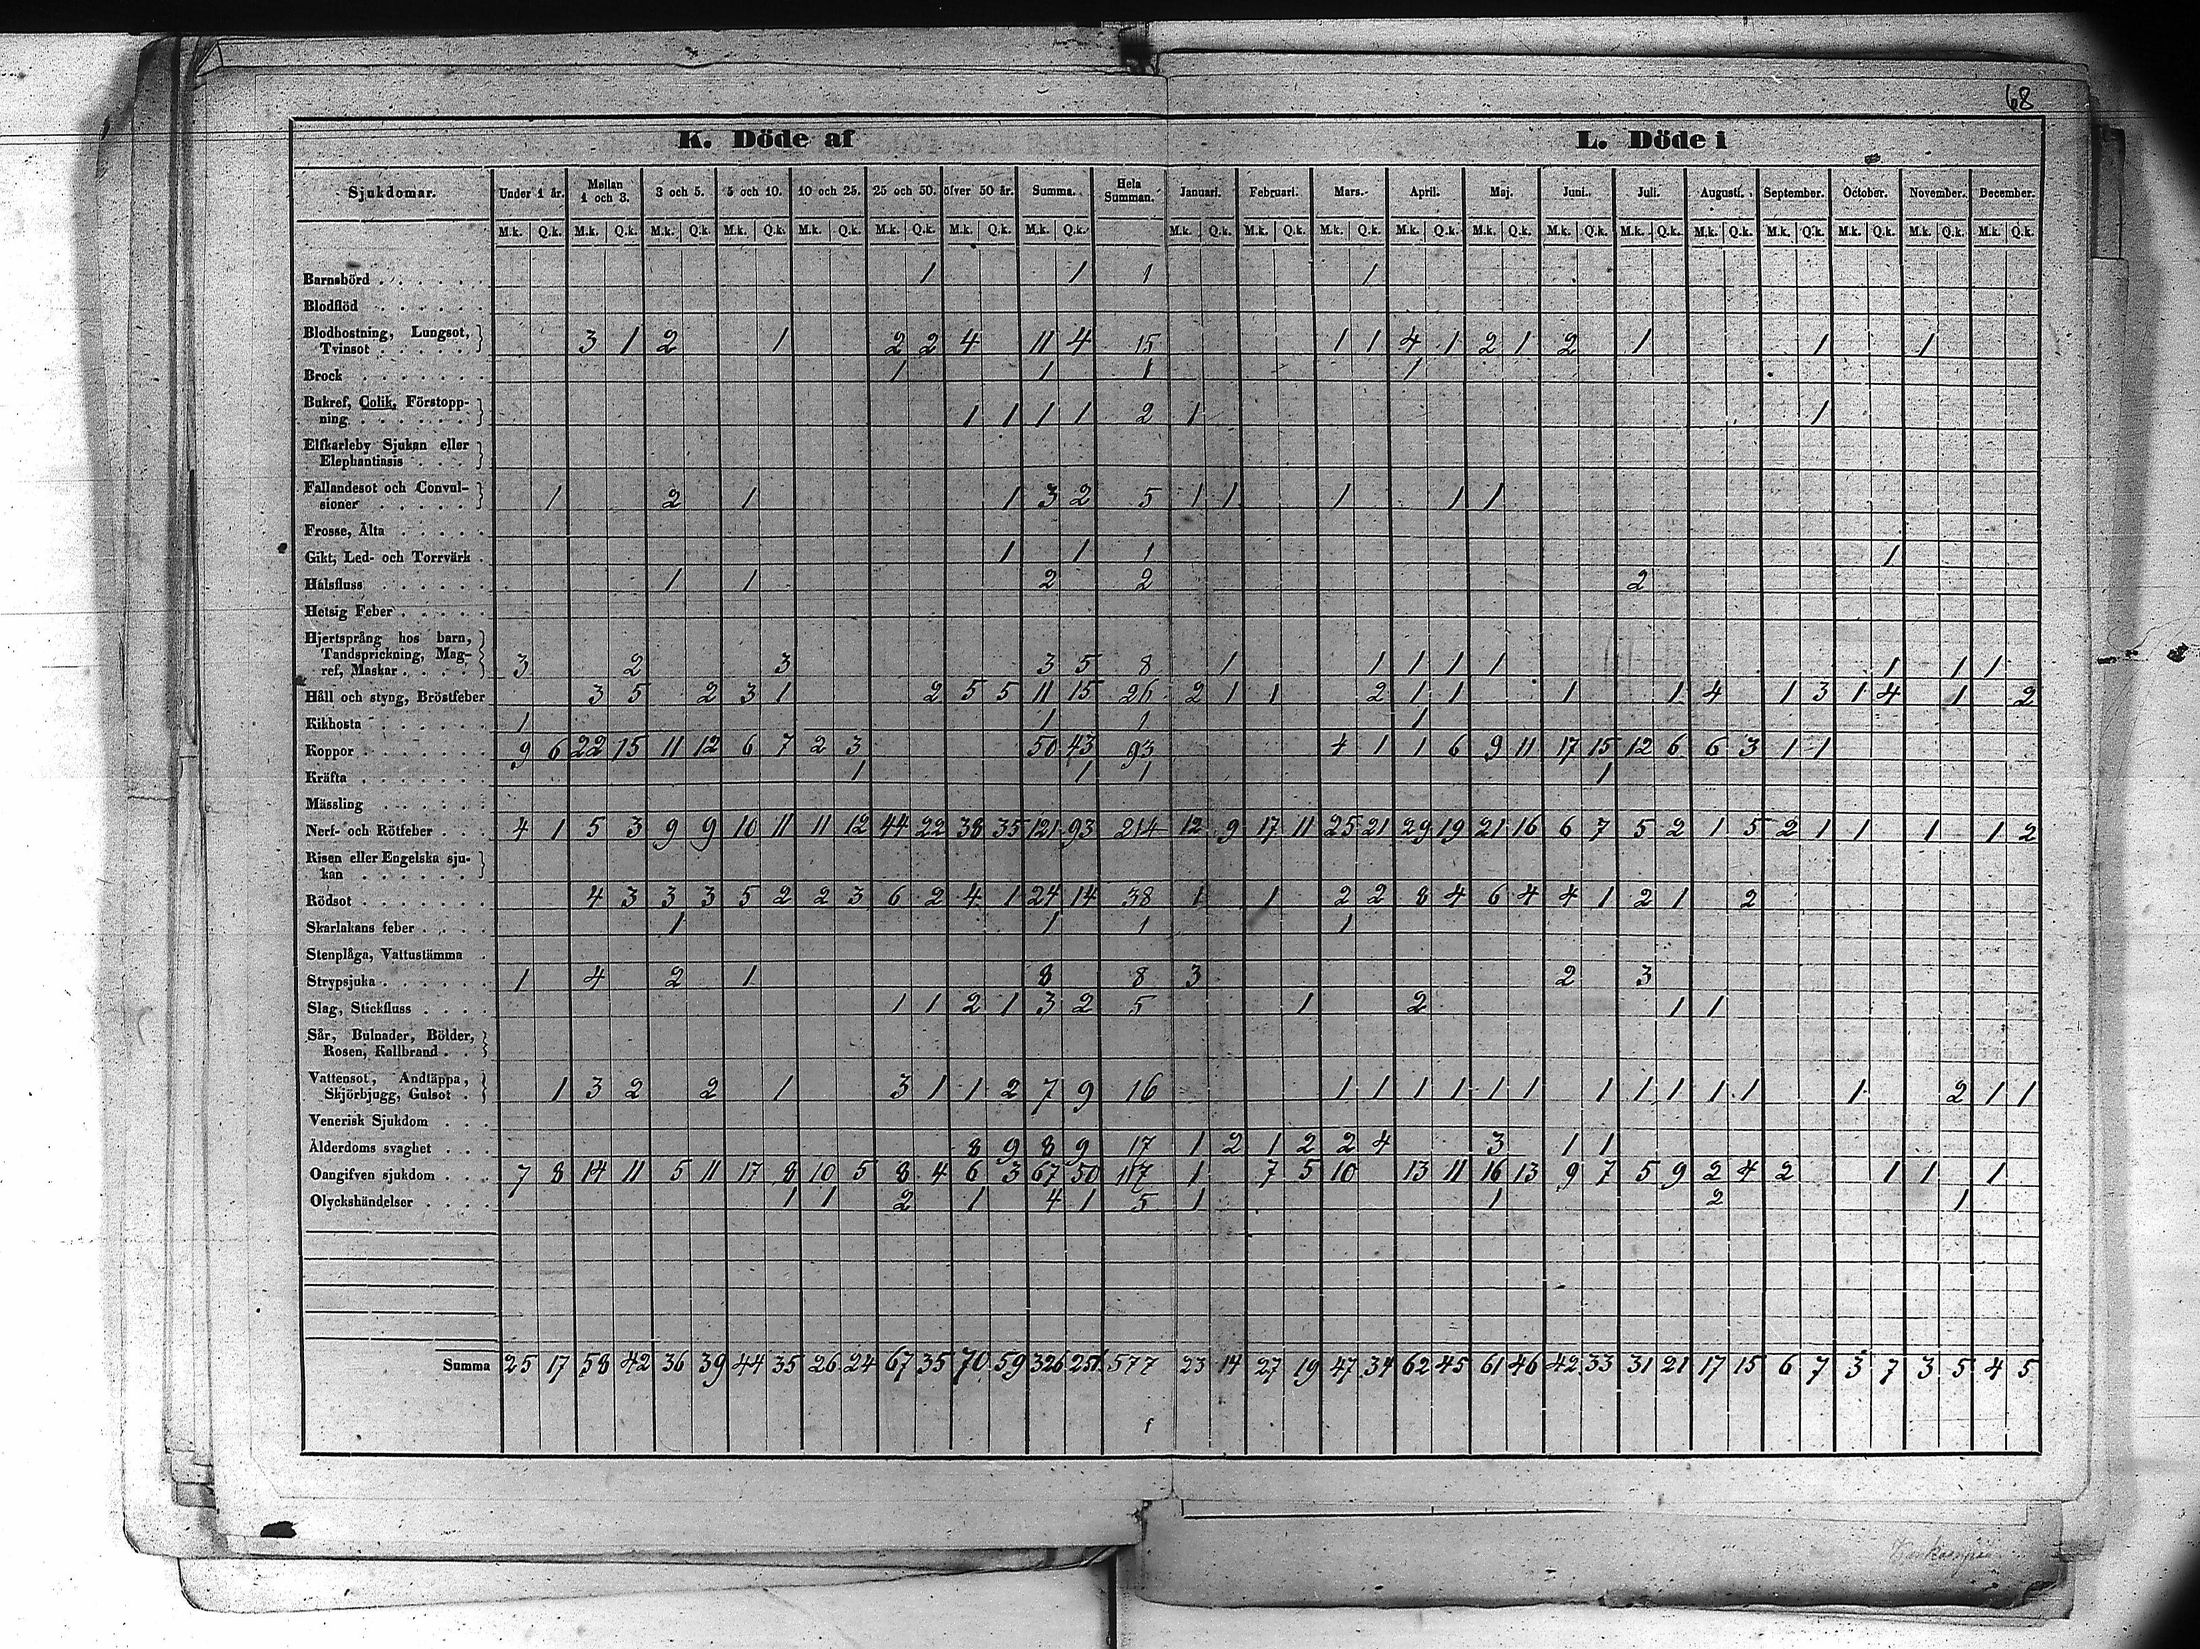 68
K. Döde af L. Döde i
Sjukdomar. Under 1 år. Mellan 1 och 3. 3 och 5. 5 och 10. 10 och 25. 25 och 50. öfver 50 år. Summa. Hela Summan. Januari. Februari. Mars. April. Maj. Juni. Juli. Augusti. September. October. November. December.
M.k. Q.k. M.k. Q.k. M.k. Q.k. M.k. Q.k. M.k. Q.k. M.k. Q.k. M.k. Q.k. M.k. Q.k. M.k. Q.k. M.k. Q.k. M.k. Q.k. M.k. Q.k. M.k. Q.k. M.k. Q.k. M.k. Q.k. M.k. Q.k. M.k. Q.k. M.k. Q.k. M.k. Q.k. M.k. Q.k.
Barnsbörd 1 1 1 1
Blodflöd
Blodhostning, Lungsot,
Tvinsot 3 1 2 1 2 2 4 11 4 15 1 1 4 1 2 1 2 1 1 1
Brock 1 1 1 1
Bukref, Colik, Förstopp-
ning 1 1 1 1 2 1 1
Elfkarleby Sjukan eller
Elephantiasis
Fallandesot och Convul-
sioner 1 2 1 1 3 2 5 1 1 1 1 1
Frosse, Älta
Gikt, Led- och Torrvärk 1 1 1 1
Halsfluss 1 1 2 2 2
Hetsig Feber
Hjertsprång hos barn,
Tandsprickning, Mag-
ref, Maskar 3 2 3 3 5 8 1 1 1 1 1 1 1 1
Håll och styng, Bröstfeber 3 5 2 3 1 2 5 5 11 15 26 2 1 1 2 1 1 1 1 4 1 3 1 4 1 2
Kikhosta 1 1 1 1
Koppor 9 6 22 15 11 12 6 7 2 3 50 43 93 4 1 1 6 9 11 17 15 12 6 6 3 1 1
Kräfta 1 1 1 1
Mässling
Nerf- och Rötfeber 4 1 5 3 9 9 10 11 11 12 44 22 38 35 121 93 214 12 9 17 11 25 21 29 19 21 16 6 7 5 2 1 5 2 1 1 1 1 2
Risen eller Engelska sju-
kan
Rödsot 4 3 3 3 5 2 2 3 6 2 4 1 24 14 38 1 1 2 2 8 4 6 4 4 1 2 1 2
Skarlakans feber 1 1 1 1
Stenplåga, Vattustämma
Strypsjuka 1 4 2 1 8 8 3 2 3
Slag, Stickfluss 1 1 2 1 3 2 5 1 2 1 1
Sår, Bulnader, Bölder,
Rosen, Kallbrand
Vattensot, Andtäppa,
Skjörbjugg, Gulsot 1 3 2 2 1 3 1 1 2 7 9 16 1 1 1 1 1 1 1 1 1 1 1 1 2 1 1
Venerisk Sjukdom
Ålderdoms svaghet 8 9 8 9 17 1 2 1 2 2 4 3 1 1
Oangifven sjukdom 7 8 14 11 5 11 17 8 10 5 8 4 6 3 67 50 117 1 7 5 10 13 11 16 13 9 7 5 9 2 4 2 1 1 1
Olyckshändelser 1 1 2 1 4 1 5 1 1 2 1
Summa 25 17 58 42 36 39 44 35 26 24 67 35 70 59 326 251 577 23 14 27 19 47 34 62 45 61 46 42 33 31 21 17 15 6 7 3 7 3 5 4 5